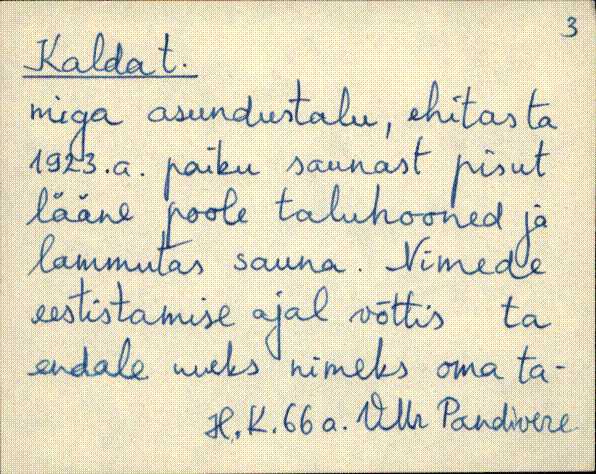 3
Kalda t.
miga asundustalu, ehitas ta
1923.a. paiku saunast pisut
lääne poole taluhooned ja
lammutas sauna. Nimede
eestistamise ajal võttis ta
endale uueks nimeks oma ta-
H.K. 66 a. VMr Pandivere